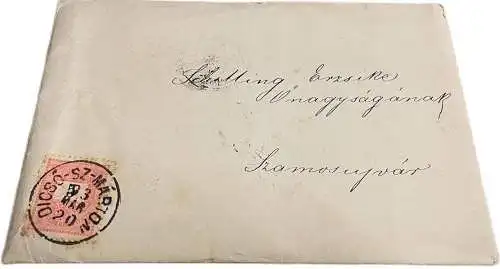 Schilling Erzsike
Önagyságának
Szamosujvár
DICSŐ-SZ-MÁRTON
MAR
20